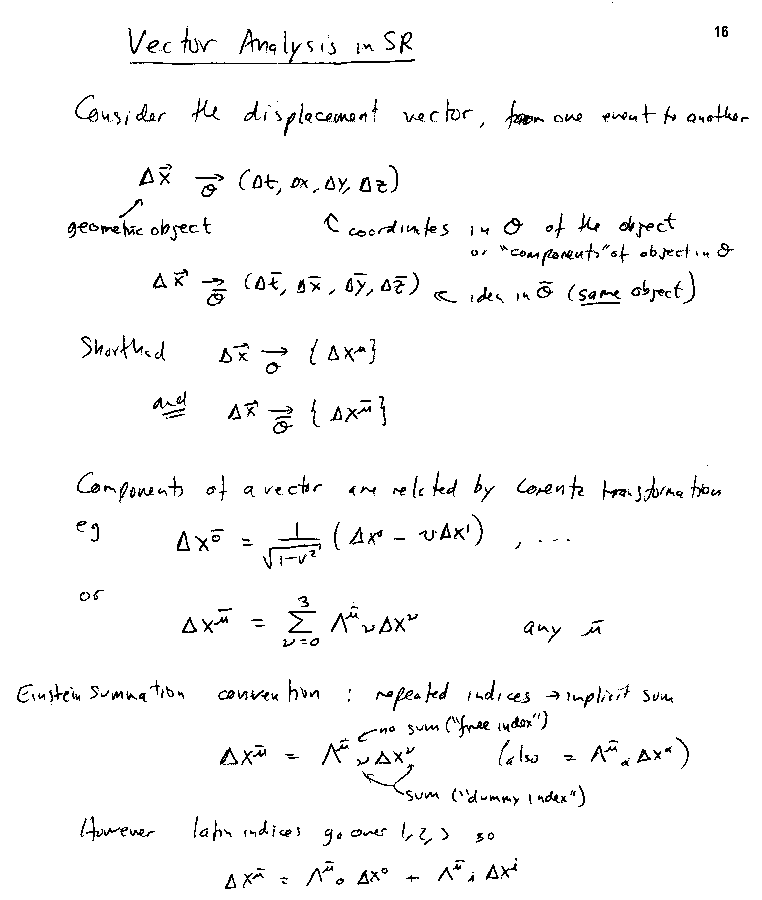 16
Vector Analysis in SR
Consider the displacement vector, from one event to another
Δx⃗ →_O (Δt, Δx, Δy, Δz)
geometric object ↑ coordinates in O of the object
or "components" of object in O
Δx⃗ →_Ō (Δt̄, Δx̄, Δȳ, Δz̄) ← idea in Ō (same object)
Shorthad Δx⃗ →_O {Δx^μ}
and Δx⃗ →_Ō {Δx^μ̄}
Components of a vector are related by Lorentz transformation
eg Δx^0̄ = 1/√(1-v²) (Δx⁰ - vΔx¹) , ...
or Δx^μ̄ = Σ_{ν=0}^{3} Λ^μ̄_ν Δx^ν any μ̄
Einstein Summation convention : repeated indices → implicit sum
no sum ("free index")
Δx^μ̄ = Λ^μ̄_ν Δx^ν (also = Λ^μ̄_α Δx^α)
sum ("dummy index")
However latin indices go over 1, 2, 3 so
Δx^μ̄ = Λ^μ̄_0 Δx⁰ + Λ^μ̄_i Δx^i